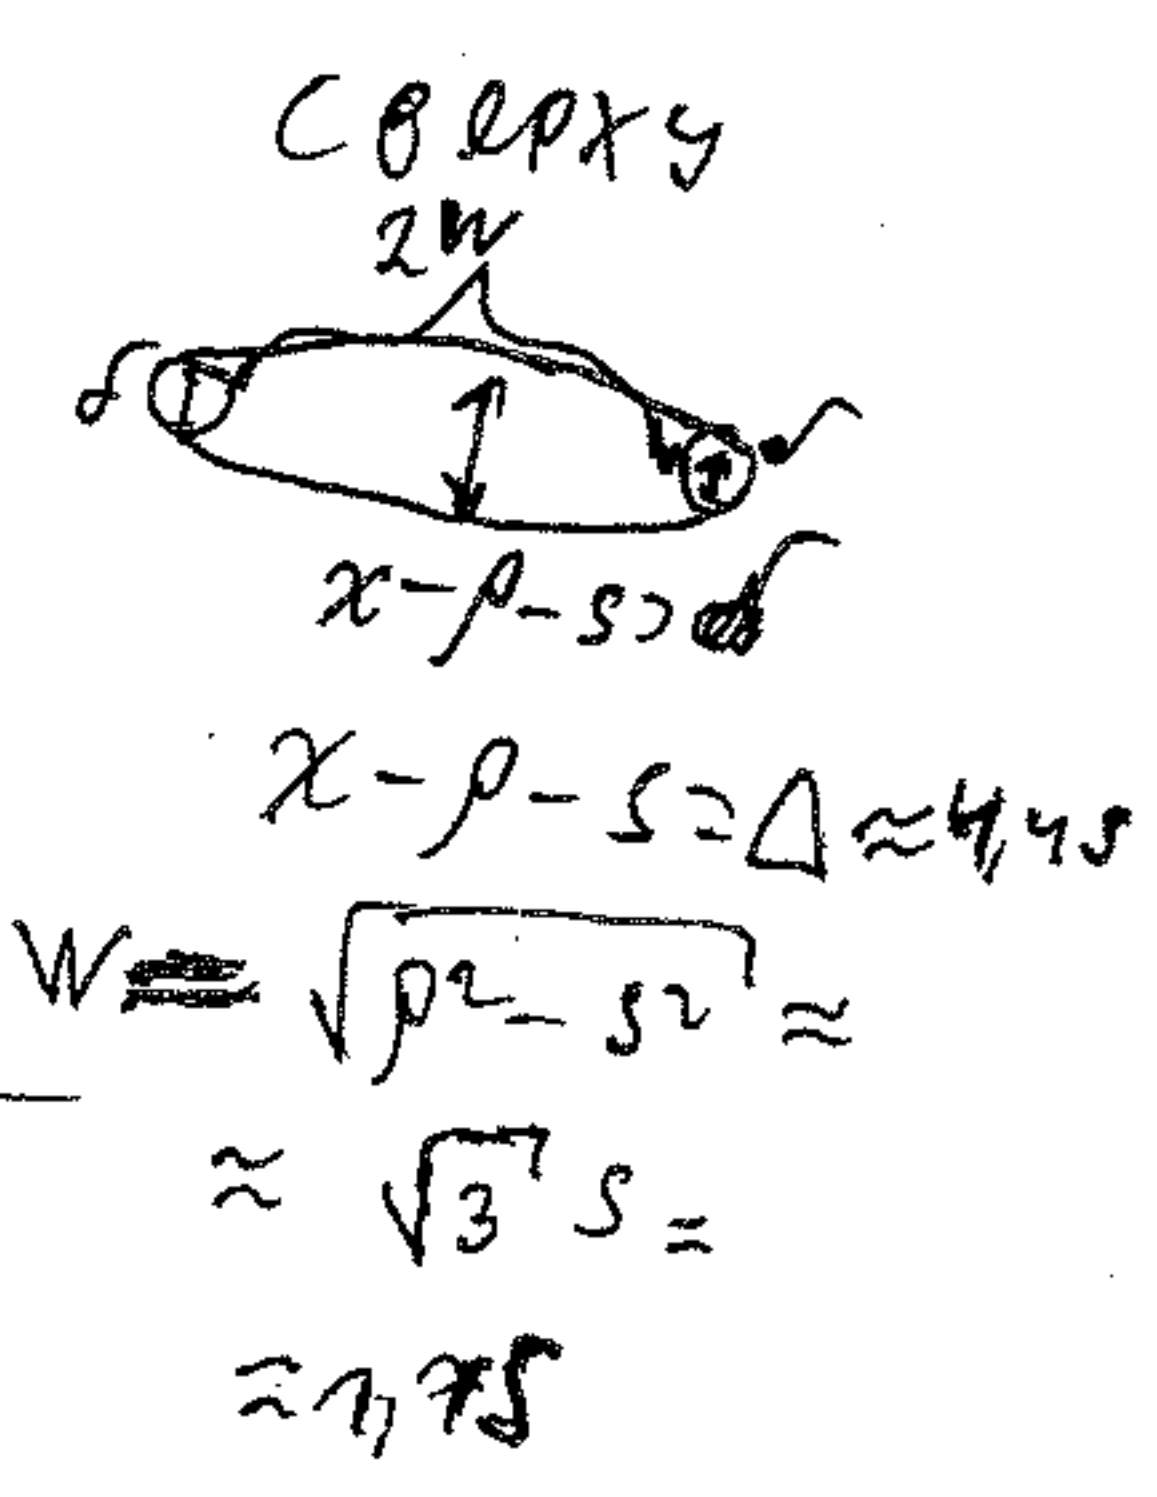 Сверху
2W
δ
x - ρ - s >
x - ρ - s = Δ ≈ 4,4s
W = √(ρ² - s²) ≈
≈ √3 s =
≈ 1,7s